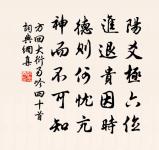 陽爻極六位
進退貴因時
德則何忱亢
神而不可知
方回大衍易吟四十首
詞典網集